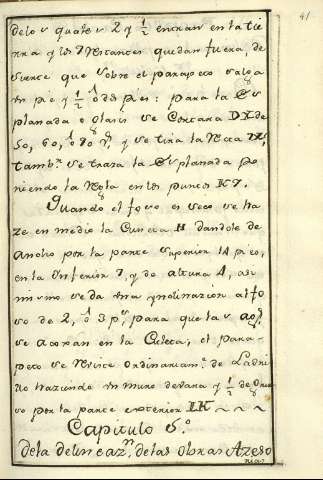 41
de los quales 2 y 1/2 entran en la tie
rra y los restantes quedan fuera, de
suerte que sobre el parapeto salga
un pie y 1/2 ô dos pies: para la Es
planada o glasis se contara DX de
50, 60, ô 70 , y se tira la recta
tambn. se traza la Esplanada po
niendo la regla en los puntos K I.
Quando el foso es seco se ha
ze en medio la Cuneta H dandole de
Ancho por la parte superior 14 pies,
en la Ynferior 7, y de altura 4, asi
mismo se da una ynclinazion al fo
so de 2, ô 3 ps, para que las ags,
se acojan en la Cuneta; el para
peto se viste ordinariamte. de Ladri
llo haziendo un muro de vara y 1/2 de grue
so por la parte exterior IK ~ ~ ~
Capitulo 5.º
de la delineazn. de las obras Azeso
rias